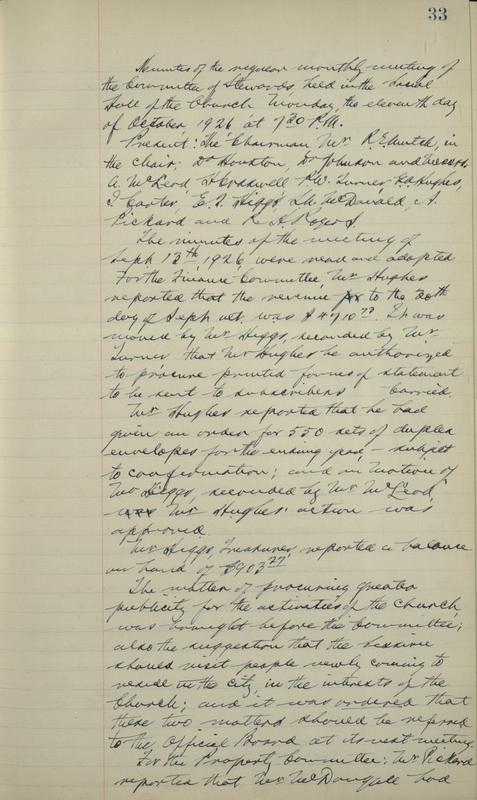 33
Minutes of the regular monthly meeting of
the Committee of Stewards, held in the Social
Hall of the Church Monday, the eleventh day
of October 1926 at 7.30 P.M.
Present: The Chairman Mr. R. E. in
the chair; Dr Houston, Dr Johnson and Messrs.
A. McLeod, H Cresswell R.W. Turner, Hughes,
J Carter, E. T. Higgs, McDonald, A.
Pickard and R. A. Rogers.
The minutes of the meeting of
Sept 13th 1926 were read and adopted
For the Finance Committee, Mr Hughes
reported that the revenue to the 30th
day of Sept ult. was It was
moved by Mr Higgs, seconded by Mr
Turner that Mr Hughes be authorized
to procure printed forms of statement
to be sent to subscribers carried.
Mr. Hughes reported that he had
given an order for 550 sets of duplex
envelopes for the ensuing year, - subject
to confirmation; and on motion of
Mr Higgs, seconded by Mr McLeod,
Mr Hughes' action was
approved.
Mr. Higgs, Treasurer, reported a balance
on hand of $903.27
The matter of procuring greater
publicity for the activities of the church
was brought before the Committee;
also the suggestion that the Session
should visit people newly coming to
reside in the city, in the interests of the
Church; and it was ordered that
these two matters should be referred
to the Official Board at its next meeting.
For the Property Committee: Mr. Pickard
reported that Mr. McDougall had